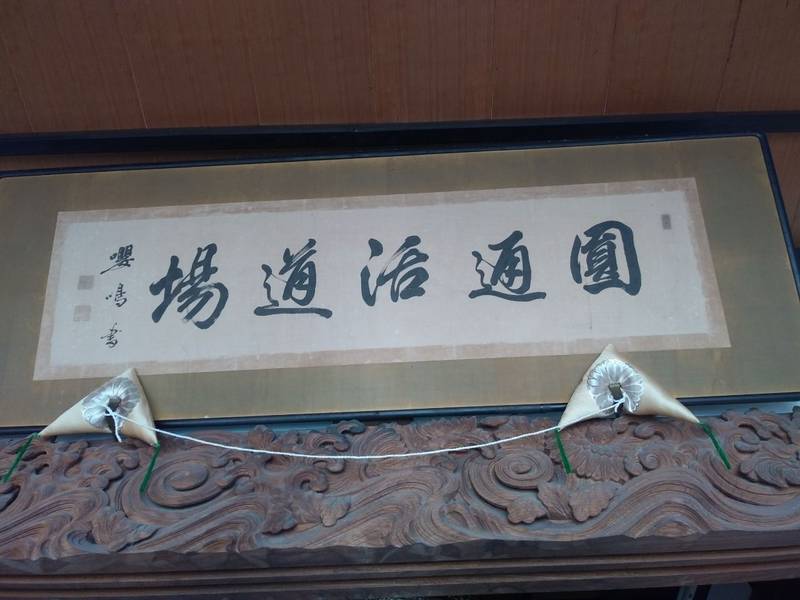 圓通活道場
嚶鳴書